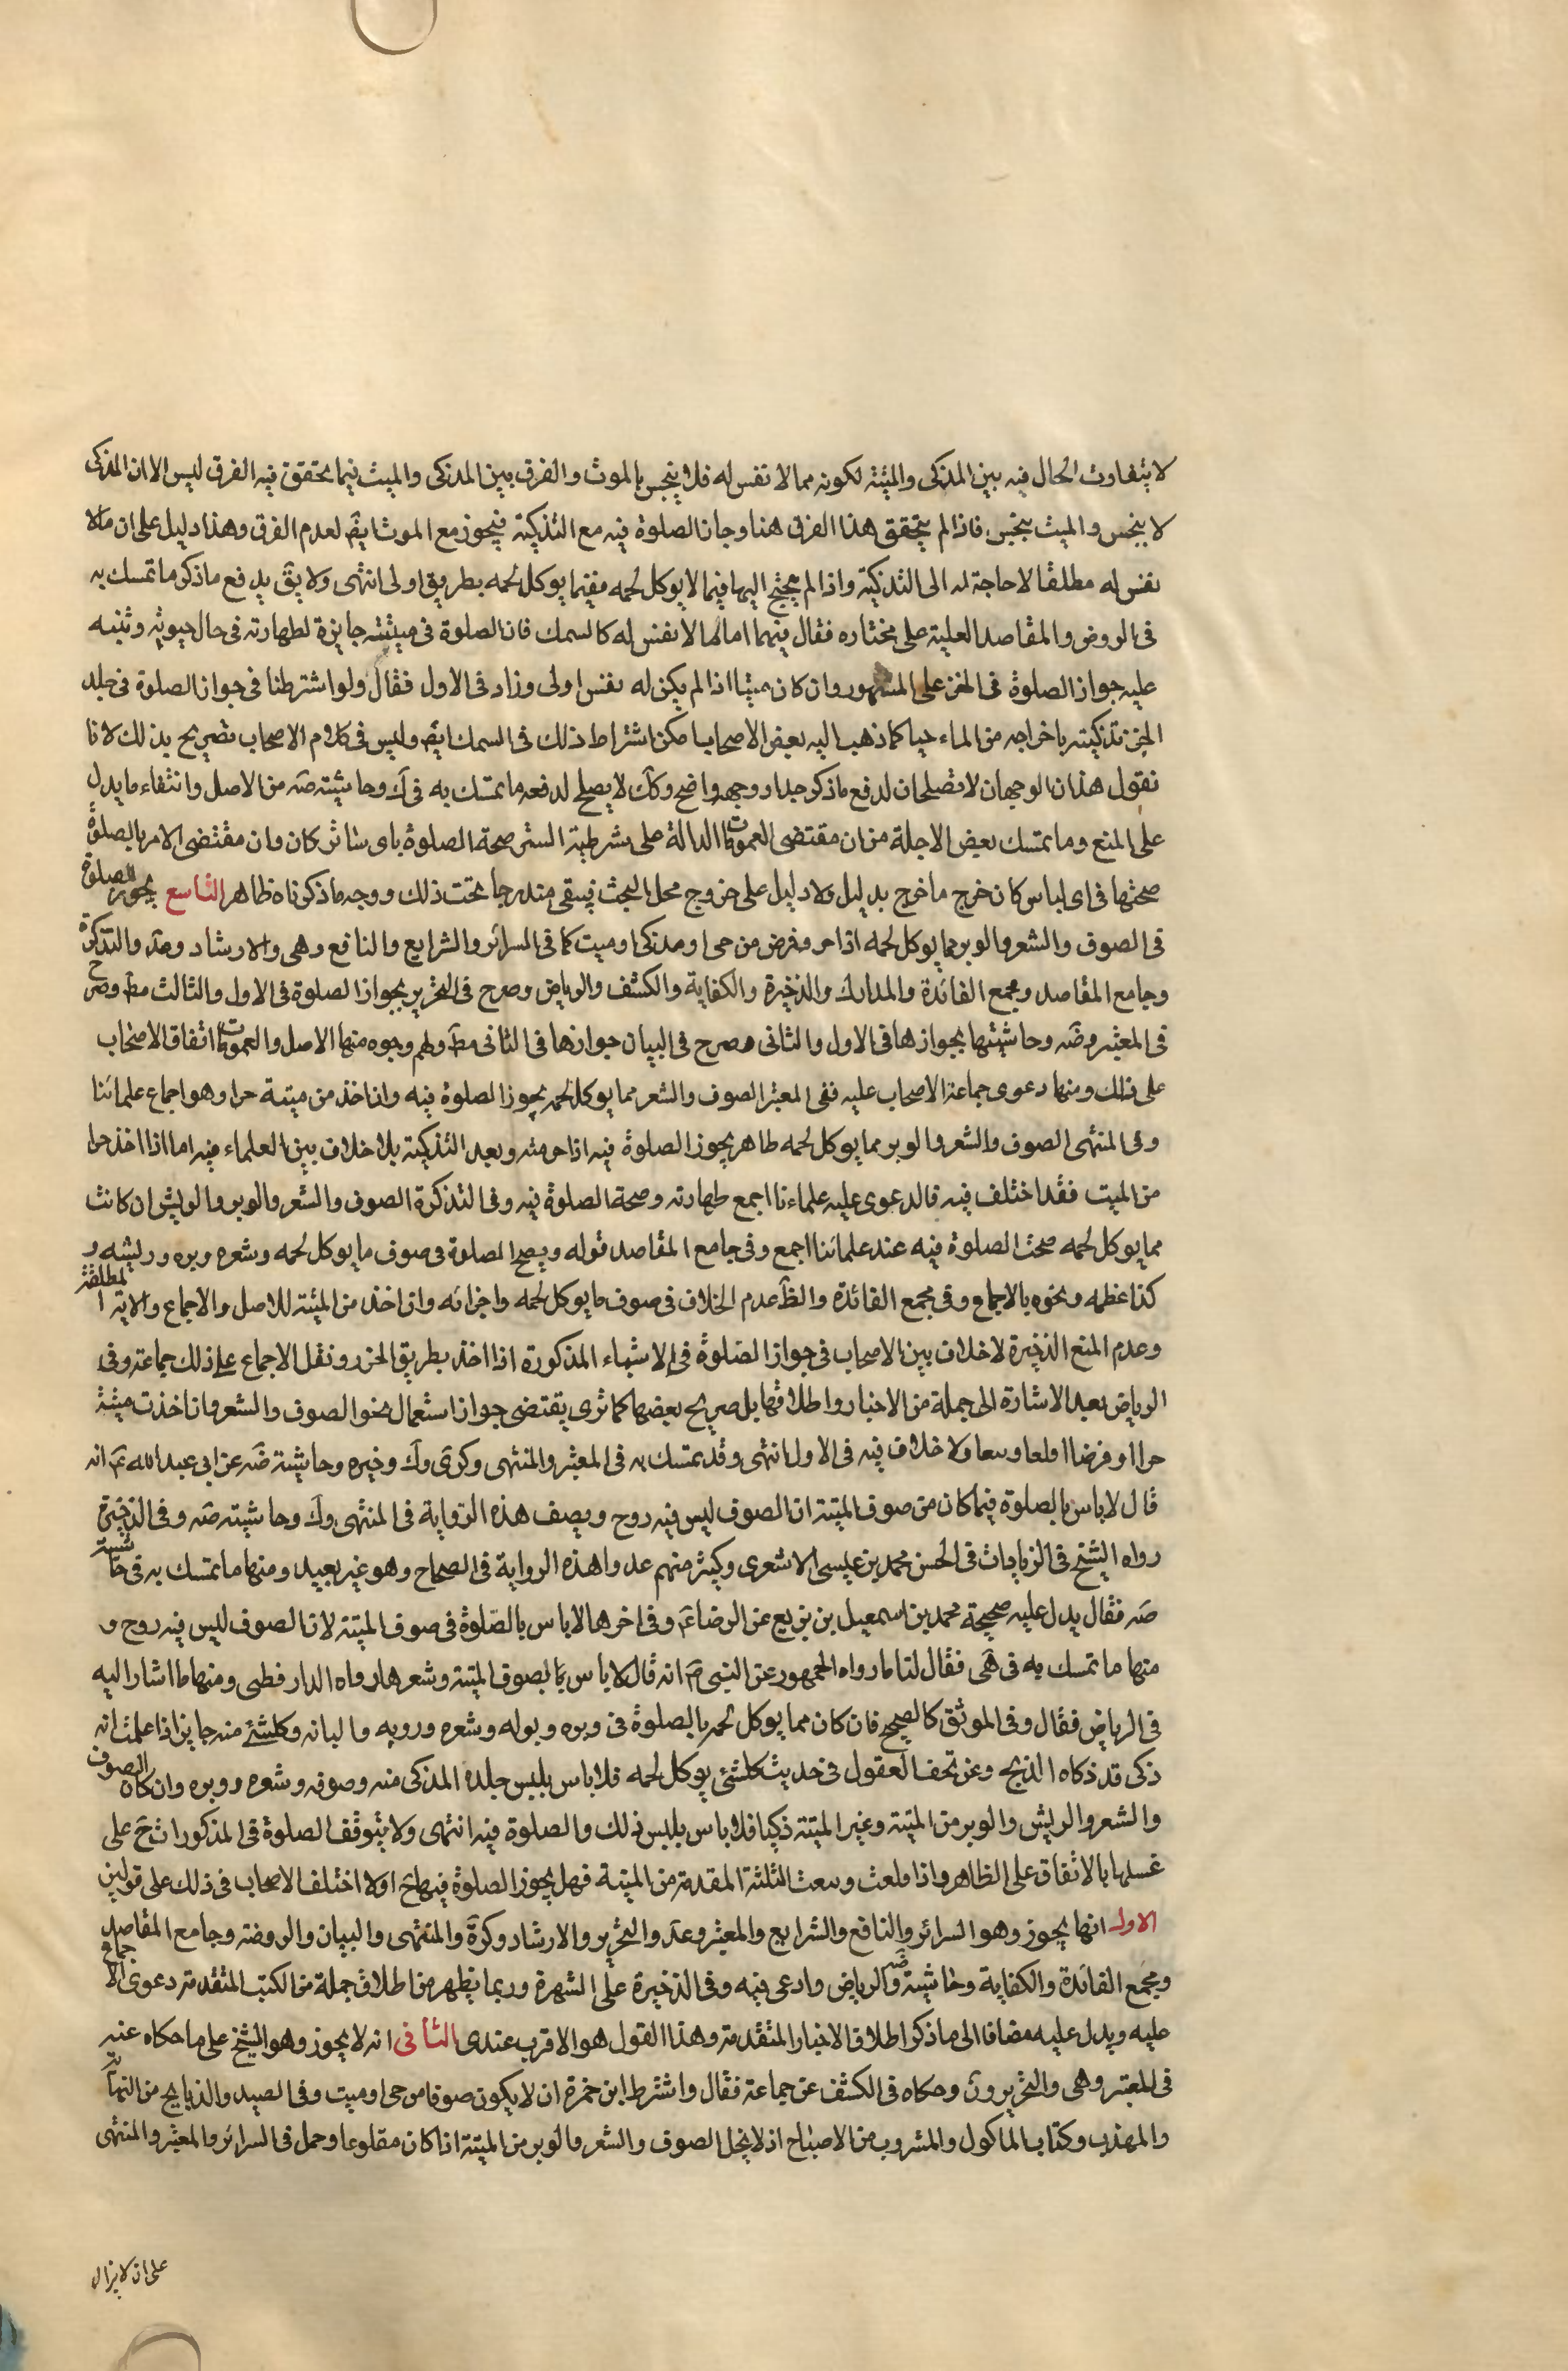 لا يتفاوت الحال فيه بين المذكى والميتة لكونه مما لا نفس له فلا ينجس بالموت والفرق بين المذكى والميت فيما يتحقق فيه الفرق ليس الا ان المذكى
لا ينجس والميت ينجس فاذا لم يتحقق هذا الفرق هنا وجاز الصلوة فيه مع التذكية فيجوز مع الموت ايضا لعدم الفرق وهذا دليل على ان مالا
نفس له مطلقا لا حاجة له الى التذكية واذا لم يحتج اليها فيما لا يوكل لحمه ففيما يوكل لحمه بطريق اولى انتهى ولا يق يدفع ما ذكر ما تمسك به
فى الروض والمقاصد العلية على مختاره فقال فيهما اما ما لا نفس له كالسمك فان الصلوة فى ميتته جايزة لطهارته فى حال حيوته وتنبه
عليه جواز الصلوة فى الخز على المشهور وان كان ميتا اذا لم يكن له نفس اولى وزاد فى الاول فقال ولو اشترطنا فى جواز الصلوة فى جلد
الخز تذكيته باخراجه من الماء حيا كما ذهب اليه بعض الاصحاب امكن اشتراط ذلك فى السمك ايض وليس فى كلام الاصحاب تصريح بذلك لانا
نقول هذان الوجهان لا تصلحان لدفع ما ذكر جدا ووجهه واضح وكك لا يصلح لدفعه ما تمسك به فى ك وحاشيته ضه من الاصل وانتفاء ما يدل
على المنع وما تمسك بعض الاجلة من ان مقتضى العمومات الدالة على شرطية الستر صحة الصلوة باى ساتر كان وان مقتضى الامر بالصلوة
صحتها فى اى لباس كان خرج ما خرج بدليل ولا دليل على خروج محل البحث فيبقى مندرجا تحت ذلك ووجه ما ذكرناه ظاهر التاسع يجوز الصلوة
فى الصوف والشعر والوبر مما يوكل لحمه اذا جز وقرض من حى او مذكى او ميت كما فى السرائر والشرايع والنافع وهى والارشاد وعد والتذكرة
وجامع المقاصد ومجمع الفائدة والمدارك والذخيرة والكفاية والكشف والرياض وصرح فى التحرير بجواز الصلوة فى الاول والثالث مط وصرح
فى المعتبر وضه وحاشيتها بجوازها فى الاول والثانى وصرح فى البيان جوازها فى الثانى مط ولهم وجوه منها الاصل والعمومات اتفاق الاصحاب
على ذلك ومنها دعوى جماعة الاصحاب عليه ففى المعتبر الصوف والشعر مما يوكل لحمه يجوز الصلوة فيه وان اخذ من ميتة جزا وهو اجماع علمائنا
وفى المنتهى الصوف والشعر والوبر مما يوكل لحمه طاهر يجوز الصلوة فيه اذا جز منه وبعد التذكية بلا خلاف بين العلماء فيه اما اذا اخذ جزا
من الميت فقد اختلف فيه فالدعوى عليه علماءنا اجمع طهارته وصحة الصلوة فيه وفى التذكرة الصوف والشعر والوبر والريش ان كانت
مما يوكل لحمه صحت الصلوة فيه عند علمائنا اجمع وفى جامع المقاصد قوله ويصح الصلوة فى صوف ما يوكل لحمه وشعره وبره وريشه و
كذا عظمه ونحوه بالاجماع وفى مجمع الفائدة والظ عدم الخلاف فى صوف ما يوكل لحمه واجزائه وان اخذ من الميتة للاصل والاجماع والاية المطلقة
وعدم المنع الذخيرة لا خلاف بين الاصحاب فى جواز الصلوة فى الاشياء المذكورة اذا اخذ بطريق الجز ونقل الاجماع على ذلك جماعة وفى
الرياض بعد الاشارة الى جملة من الاخبار واطلاقها بل صريح بعضها كما ترى يقتضى جواز استعمال نحو الصوف والشعر وان اخذت ميتة
جزا او قرضا او قلعا ولا خلاف فيه فى الاول انتهى وقد تمسك به فى المعتبر والمنتهى وكرى وك وخيره وحاشيته ضه عن ابى عبد الله ع انه
قال لا باس بالصلوة فيما كان من صوف الميتة ان الصوف ليس فيه روح ويصف هذه الرواية فى المنتهى وك وحاشيته ضه وفى الذخيرة
رواه الشيخ فى الزيادات فى الحسن محمد بن عيسى الاشعرى وكثير منهم عدوا هذه الرواية فى الصحاح وهو غير بعيد ومنها ما تمسك به فى حاشيته
ضه فقال يدل عليه صحيحة محمد بن اسمعيل بن بزيع عن الرضا ع وفى اخرها لا باس بالصلوة فى صوف الميتة لان الصوف ليس فيه روح و
منها ما تمسك به فى هى فقال لنا ما رواه الجمهور عن النبى ص انه قال لا باس بالصوف الميتة وشعرها رواه الدار قطنى ومنها ما اشار اليه
فى الرياض فقال وفى الموثق كالصحيح فان كان مما يوكل لحمه بالصلوة فى وبره وبوله وشعره وروثه والبانه وكلشئ منه جايز اذا علمت انه
ذكى قد ذكاه الذبح وعن تحف العقول فى حديث كلشئ يوكل لحمه فلا باس بلبس جلده المذكى منه وصوفه وشعره ووبره وان كان الصوف
والشعر والريش والوبر من الميتة وغير الميتة ذكيا فلا باس بلبس ذلك والصلوة فيه انتهى ولا يتوقف الصلوة فى المذكورات ح على
غسلها بالاتفاق على الظاهر واذا قلعت الثلثة المقدمة من الميتة فهل يجوز الصلوة فيها ح اولا اختلف الاصحاب فى ذلك على قولين
الاول انها يجوز وهو السرائر والنافع والشرايع والمعتبر وعد والتحرير والارشاد وكرة والمنتهى والبيان والروضة وجامع المقاصد
ومجمع الفائدة والكفاية وحاشيته ضه والرياض وادعى فيه وفى الذخيرة على الشهرة وربما يظهر من اطلاق جملة من الكتب المتقدمة دعوى الاجماع
عليه ويدل عليه مضافا الى ما ذكر اطلاق الاخبار المتقدمة وهذا القول هو الاقرب عندى الثانى انه لا يجوز وهو الشيخ على ما حكاه عنه
فى المعتبر وهى والتحرير ون وحكاه فى الكشف عن جماعة فقال واشترط ابن حمزة ان لا يكون صوفا من حى او ميت وفى الصيد والذبايح من النهاية
والمهذب وكتاب الماكول والمشروب من الاصباح اذ لا يحل الصوف والشعر والوبر من الميتة اذا كان مقلوعا وحمل فى السرائر والمعتبر والمنتهى
على ان لا يزال